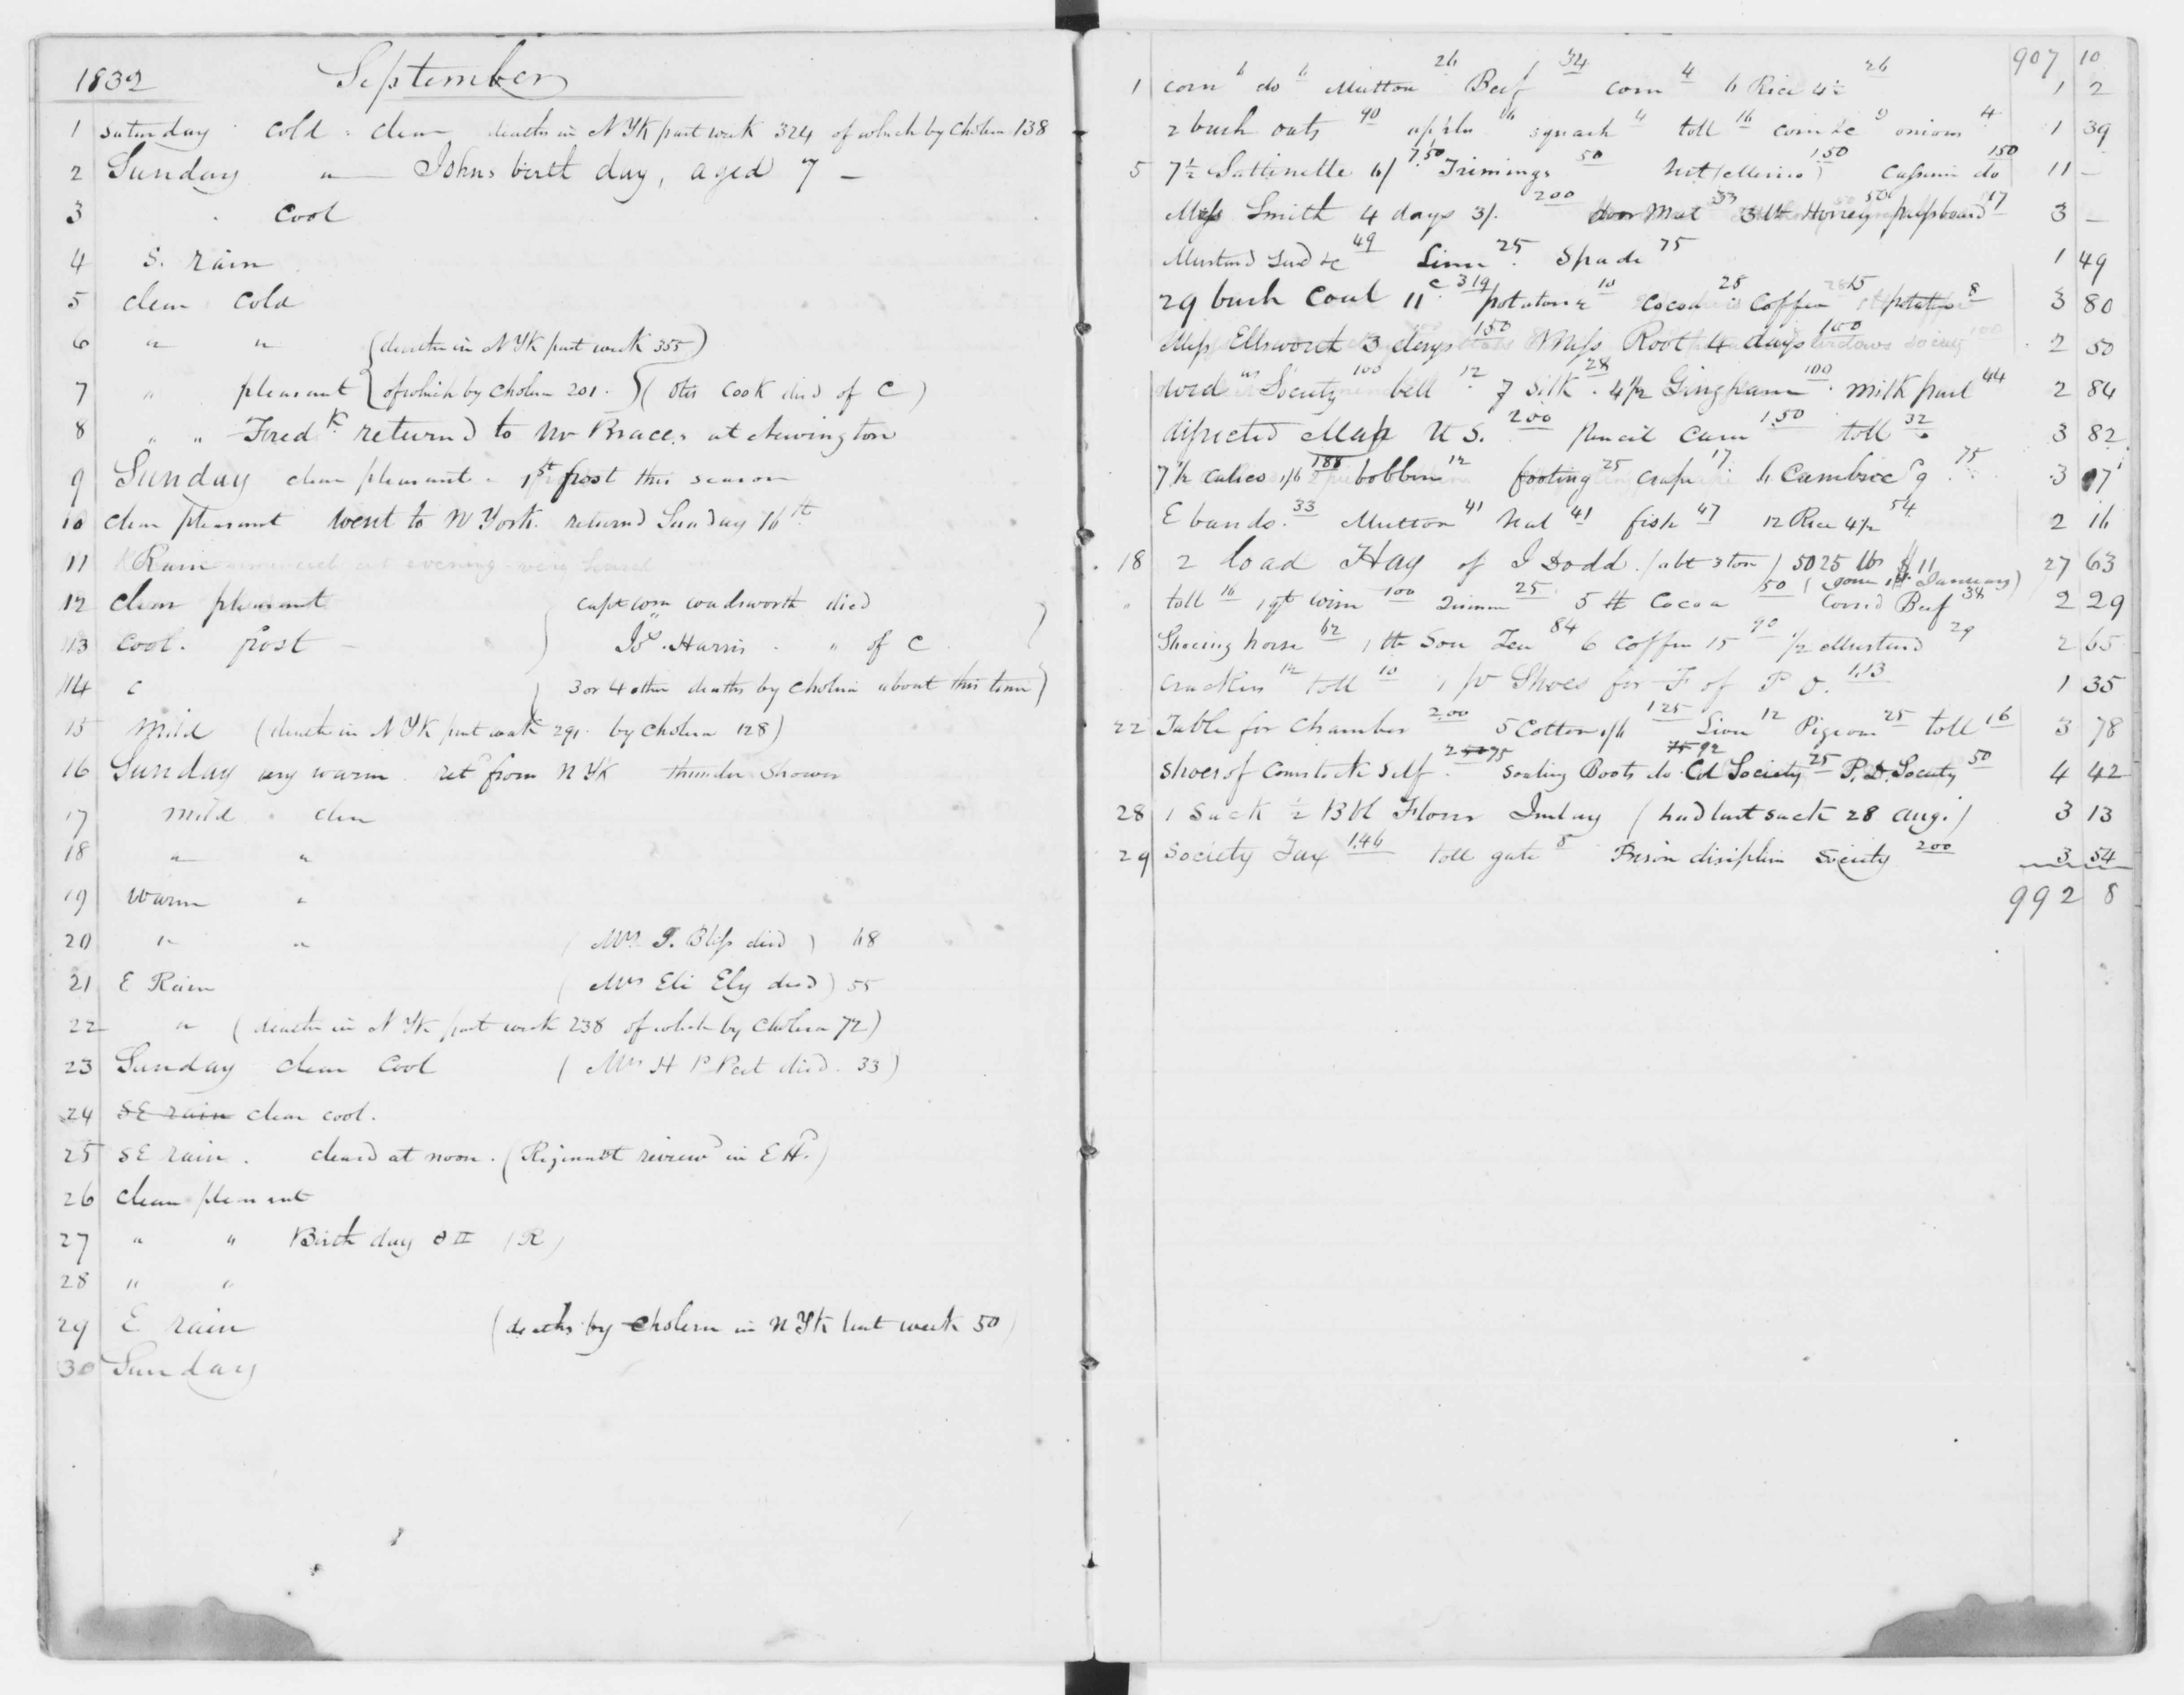 1832 September
1 Saturday cold clear deaths in N Yk past week 324 of which by Cholera 138
2 Sunday " Johns birth day, aged 7 –
3 Cool
4 S. rain
5 clear Cold
6 " " (deaths in N Yk past week 355)
7 " pleasant (of which by Cholera 201.) (Otis Cook died of C)
8 " " Fredk returnd to Mr Braces at Newington
9 Sunday clear pleasant 1st frost this season
10 clear pleasant went to N York. returnd Sunday 16th
11 Rain
12 clear pleasant Capt Wadsworth died
13 Cool. frost – Js. Harris " of C
14 c 3 or 4 other deaths by Cholera about this time)
15 Mild (deaths in N Yk past week 291 by Cholera 128)
16 Sunday very warm ret from N Yk thunder shower
17 mild clear
18 " "
19 Warm "
20 " " (Mrs. T. Bliss died) 68
21 E Rain (Mrs Eli Ely died) 55
22 " (deaths in N Yk past week 238 of which by Cholera 72)
23 Sunday clear Cool (Mrs H P Peet died. 33)
24 SE rain clear cool.
25 SE rain. cleard at noon. (Regimnt review in E H.)
26 clear pleasant
27 " " Birth day (R)
28 " "
29 E rain (deaths by Cholera in N Yk last week 50)
30 Sunday
907 10
1 corn 6 do 6 Mutton 26 Beef 34 corn 4 6 Rice 4½ 26 1 2
2 bush oats 90 squash 4 toll 16 corn &c onions 4 1 39
5 7½ Sattinette 6/ 7.50 Trimings 50 Mer(ino) 1.50 do 150 11 –
Miss Smith 4 days 3/. 200 Mat 33 Honey 50 17 3 –
Mustard Seed &c 49 25 Spade 75 1 49
29 bush Coal 11c 319 potatoes 10 Cocoa 28 Coffee 15 potatoes 8 3 80
Miss Ellsworth 3 days 150 Miss Root 4 days 100 2 50
Society 100 bell 12 silk 28 4½ Gingham 100 milk pail 44 2 84
disected Map U S. 200 Pencil Case 1.50 toll 32 3 82
7½ calico 1/6 188 bobbin 12 footing 25 crape 17 Cambric 75 3 17
E bands. 33 Mutton 41 Veal 41 fish 47 12 Rice 4½ 54 2 16
18 2 load Hay of J Dodd. (abt 3 ton) 5025 lbs $11 27 63
toll 16 1 qt wine 100 25 5 lb Cocoa 50 (gone 1st January) Cornd Beef 38 2 29
Shoeing horse 62 1 lb Sou Tea 84 6 Coffee 15 90 ½ Mustard 29 2 65
Crackers 12 toll 10 1 pr Shoes for F of P O. 1.13 1 35
22 Table for Chamber 200 5 Cotton 1/6 125 12 Pigeons 25 toll 16 3 78
Shoes of Comstock self 75 Soaling Boots do 92 Cd Society 25 P. D. Society 50 4 42
28 1 Sack ½ Bbl Flour Imlay (had last sack 28 Aug.) 3 13
29 Society Tax 1.46 toll gate 8 Prison disiplin Society 200 3 54
992 8